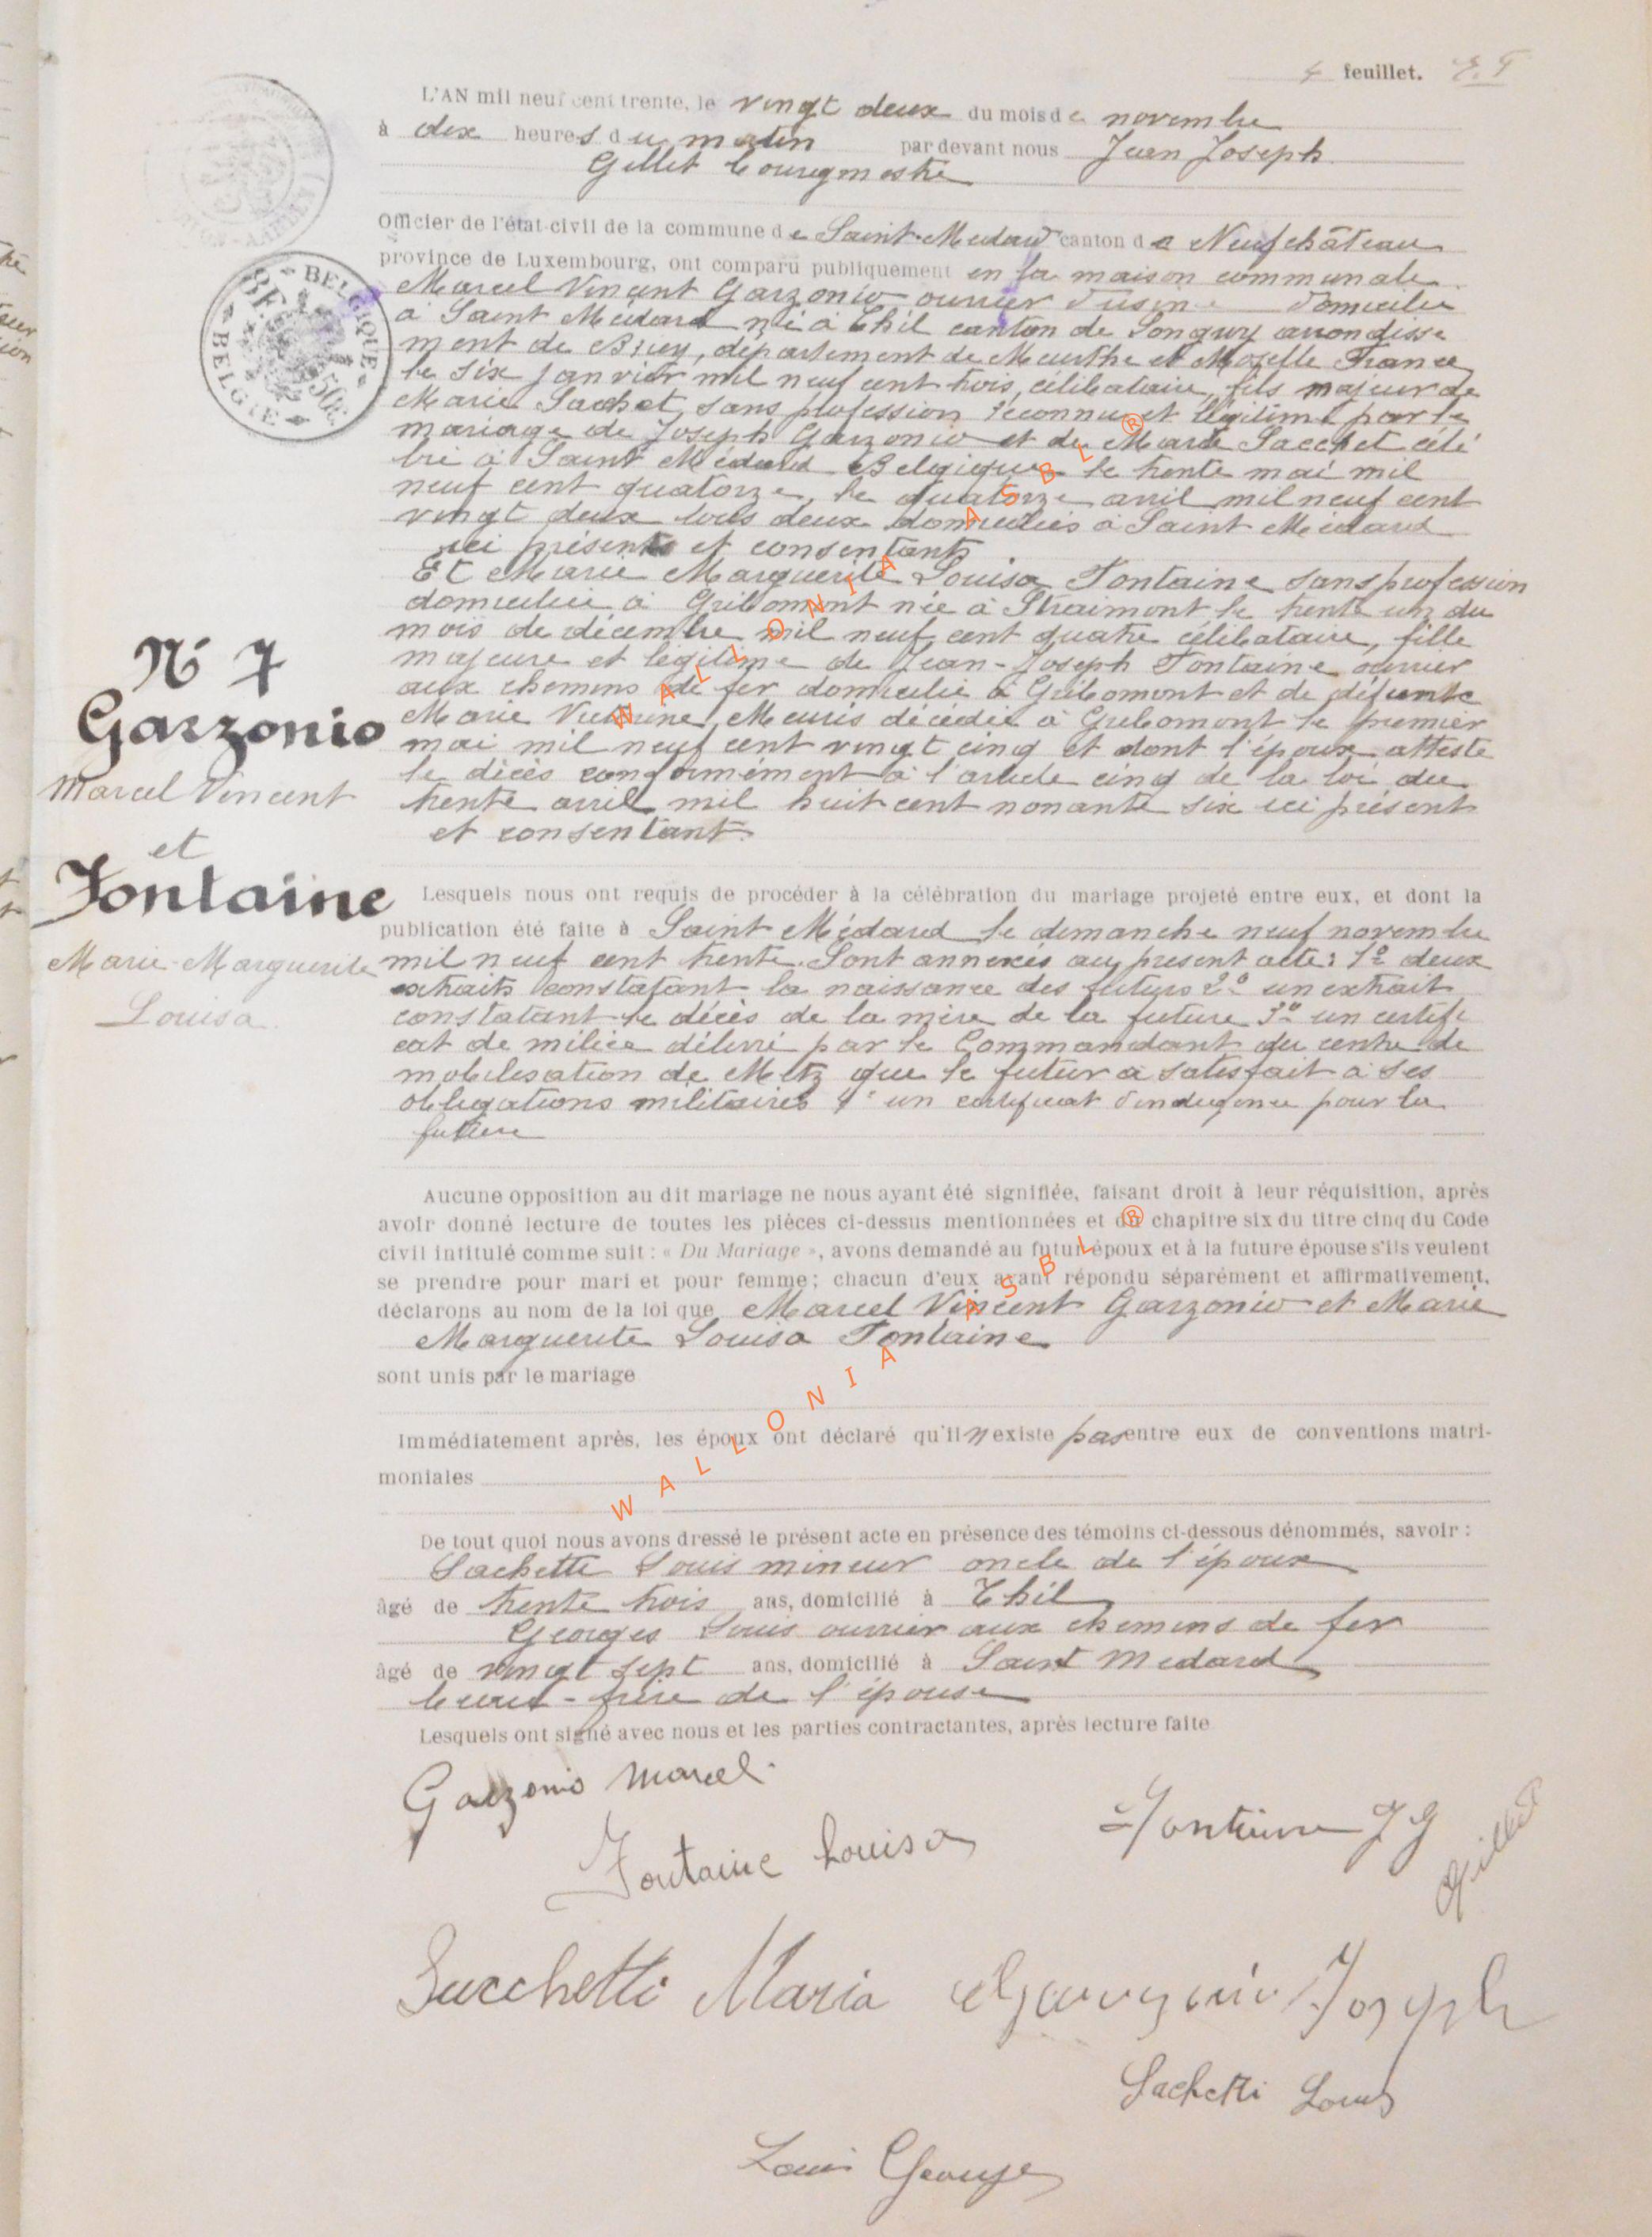 4 feuillet.
L'AN mil neuf cent trente, le vingt deux du mois de novembre
à dix heures du matin par devant nous Jean Joseph
Gillet bourgmestre
Officier de l'état-civil de la commune de Saint-Médard canton de Neufchâteau
province de Luxembourg, ont comparu publiquement en la maison communale
Marcel Vincent Garzonio ouvrier d'usine domicilié
à Saint Médard né à Thil canton de Longwy arrondisse
ment de Briey, département de Meurthe et Moselle France
le six janvier mil neuf cent trois, célibataire, fils majeur de
Marie Sachet, sans profession reconnu et légitimé par le
mariage de Joseph Garzonio et de Marie Sacchet célé
bré à Saint Médard Belgique le trente mai mil
neuf cent quatorze, le quatorze avril mil neuf cent
vingt deux tous deux domiciliés à Saint Médard
ici présents et consentants
Et Marie Marguerite Louisa Fontaine sans profession
domiciliée à Gribomont née à Straimont le trente un du
mois de décembre mil neuf cent quatre célibataire, fille
majeure et légitime de Jean-Joseph Fontaine ouvrier
aux chemins de fer domicilié à Gribomont et de défunte
Marie Meuris décédée à Gribomont le premier
mai mil neuf cent vingt cinq et dont l'époux atteste
le décès conformément à l'article cinq de la loi du
trente avril mil huit cent nonante six ici présent
et consentant.
N° 7
Garzonio
Marcel Vincent
et
Fontaine
Marie-Marguerite
Louisa.
Lesquels nous ont requis de procéder à la célébration du mariage projeté entre eux, et dont la
publication été faite à Saint Médard le dimanche neuf novembre
mil neuf cent trente. Sont annexés au présent acte: 1° deux
extraits constatant la naissance des futurs 2° un extrait
constatant le décès de la mère de la future 3° un certifi
cat de milice délivré par le Commandant du centre de
mobilisation de Metz que le futur a satisfait à ses
obligations militaires 4° un certificat d'indigence pour la
future
Aucune opposition au dit mariage ne nous ayant été signifiée, faisant droit à leur réquisition, après
avoir donné lecture de toutes les pièces ci-dessus mentionnées et du chapitre six du titre cinq du Code
civil intitulé comme suit : « Du Mariage », avons demandé au futur époux et à la future épouse s'ils veulent
se prendre pour mari et pour femme; chacun d'eux ayant répondu séparément et affirmativement,
déclarons au nom de la loi que Marcel Vincent Garzonio et Marie
Marguerite Louisa Fontaine
sont unis par le mariage
Immédiatement après, les époux ont déclaré qu'il n'existe pas entre eux de conventions matri-
moniales
De tout quoi nous avons dressé le présent acte en présence des témoins ci-dessous dénommés, savoir :
Sachette Louis mineur oncle de l'époux
âgé de trente trois ans, domicilié à Thil
Georges Louis ouvrier aux chemins de fer
âgé de vingt sept ans, domicilié à Saint Médard
beau-frère de l'épouse
Lesquels ont signé avec nous et les parties contractantes, après lecture faite
Garzonio Marcel.
Fontaine JJ
Gillet
Fontaine Louisa
Sacchetti Maria
Garzonio Joseph
Sachetti Louis
Louis Georges
BELGIQUE
BELGIE
WALLONIA ASBL ®
WALLONIA ASBL ®